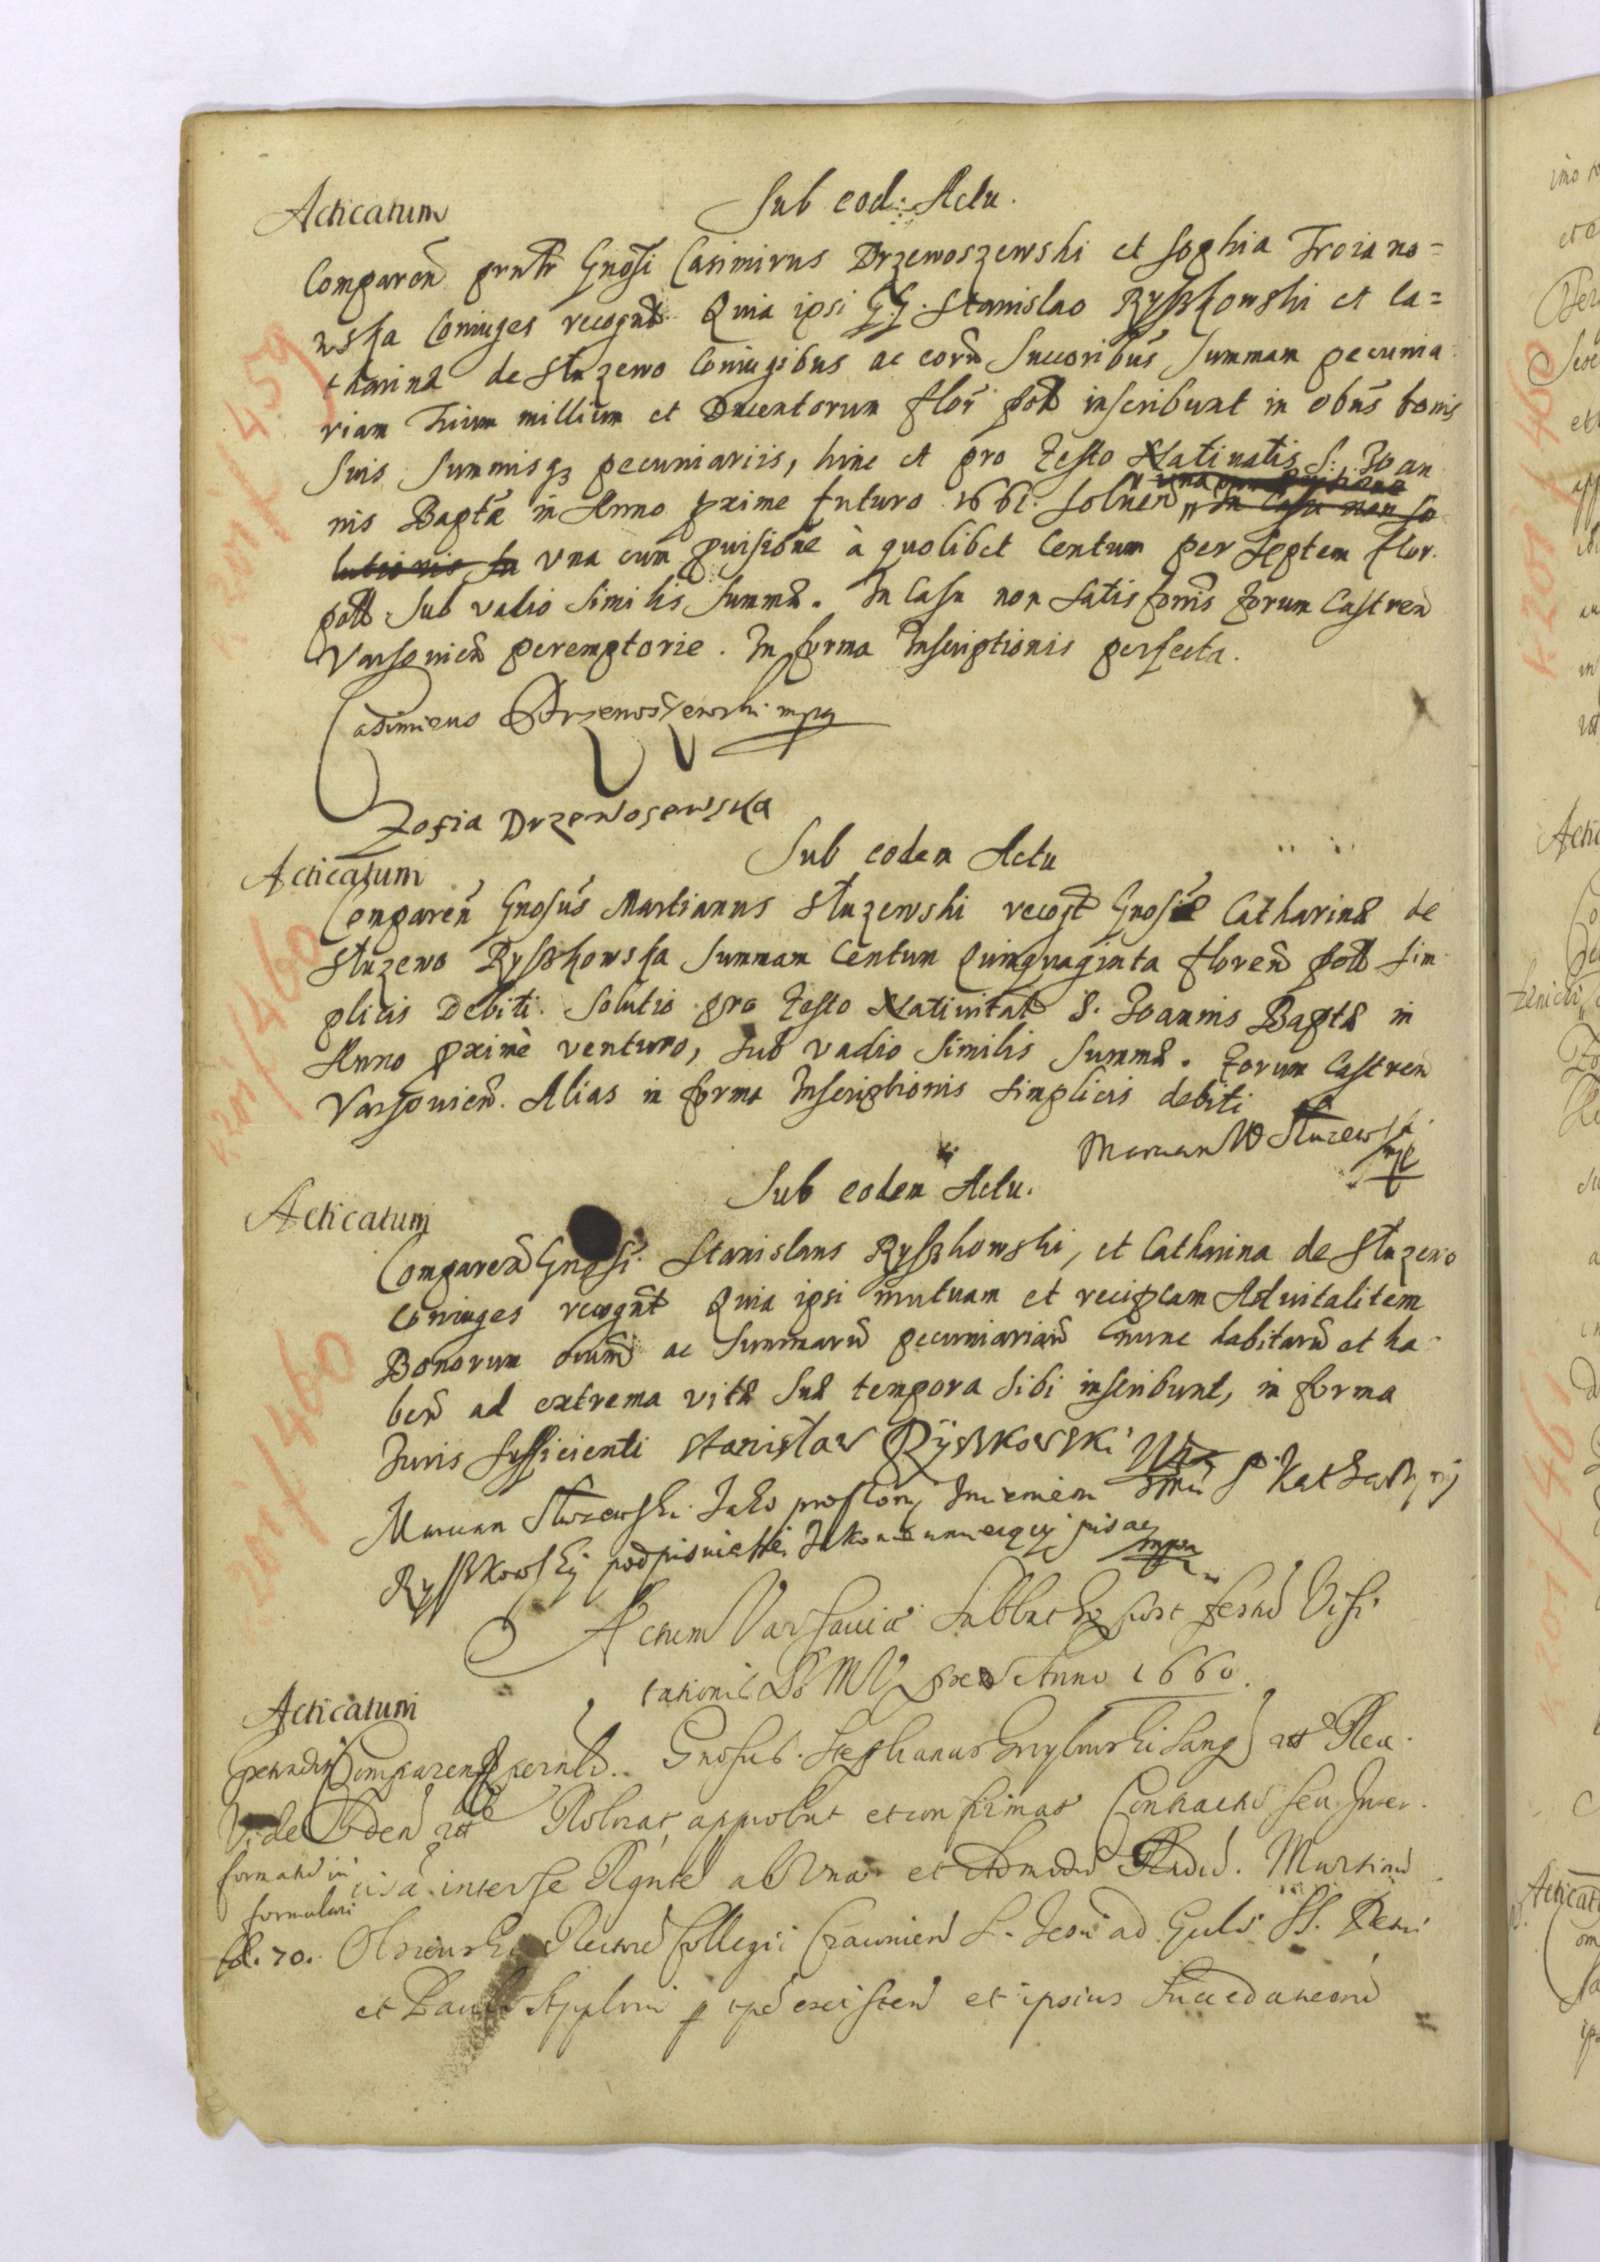 Acticatum
Sub eod: Actu.
Comparen̄ prntr Gnosi Casimirus Drzewoszewski et Sophia Troiano=
wska Coniuges recognt Quia ipsi G.G. Stanislao Ryszkowski et Ca=
tharinæ de Służewo Coniugibus ac eorū Succoribus Summam pecunia
riam Trium millium et Ducentorum flor poll inscribunt in obūs bonis
suis Summisq3 pecuniariis, hinc et pro Festo Natiuatis S: Joan
nis Baptæ in Anno pxime futuro 1661. Soluen̄ In Casu non so
lutionis In Vna cum puisione à quolibet Centum per Septem flor.
poll. Sub vadio similis Summæ. In Casu non satisfonis forum Castren̄
Varsouien̄ peremptorie. In forma Inscriptionis perfecta.
Casimirus Drzewoszewski mpp
Zofia Drzewosewska
Acticatum
Sub eodem Actu
Comparen̄ Gnosus Martianus Służewski recogt Gnosæ Catharinæ de
Służewo Ryszkowska Summam Centum Quinquaginta floren̄ poll sim
plicis Debiti. Solutio pro Festo Natiuitat S. Joannis Baptæ in
Anno pximè venturo, Sub vadio Similis Summæ. Forum Castren̄
Varsouien̄. Alias in forma Inscriptionis simplicis debiti
Marcian Służewski
Sub eodem Actu.
Acticatum
Comparen̄ Gnosi Stanislaus Ryszkowski, et Catharina de Służewo
Coniuges recognt Quia ipsi mutuam et recipcam Aduitalitem
Bonorum oium ac Summarū pecuniariarū nunc habitarū et ha
ben̄ ad extrema vitæ Suæ tempora Sibi inscribunt, in forma
Iuris sufficienti Stanisław Ryszkowski
Marcian Służewski Jako proszony Imieniem Katharzyny
Ryszkowski podpisuie się Jako nie umieiącey pisac mpp
Actum Varsauiæ Sabbatho post festū Visi
tationis B M V pxo Anno 1660.
Acticatum
Comparen̄ Gnosus Stephanus
Vide
Roborat approbat et confirmat Contractū seu Inter
formatū in
cisā inter se ab Vna et Martinū
formulari
fol. 70.
Rectorē Collegii S. Jesu ad SS. Petri
et Pauli Applorū existen̄ et ipsius Succedaneorū
201 f 459
201 f 460
201 f 460